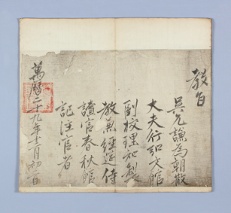 教旨
吳允謙為朝散
大夫行弘文館
副校理知製
教兼經筵侍
讀官春秋館
記注官者
萬曆二十九年十二月初一日